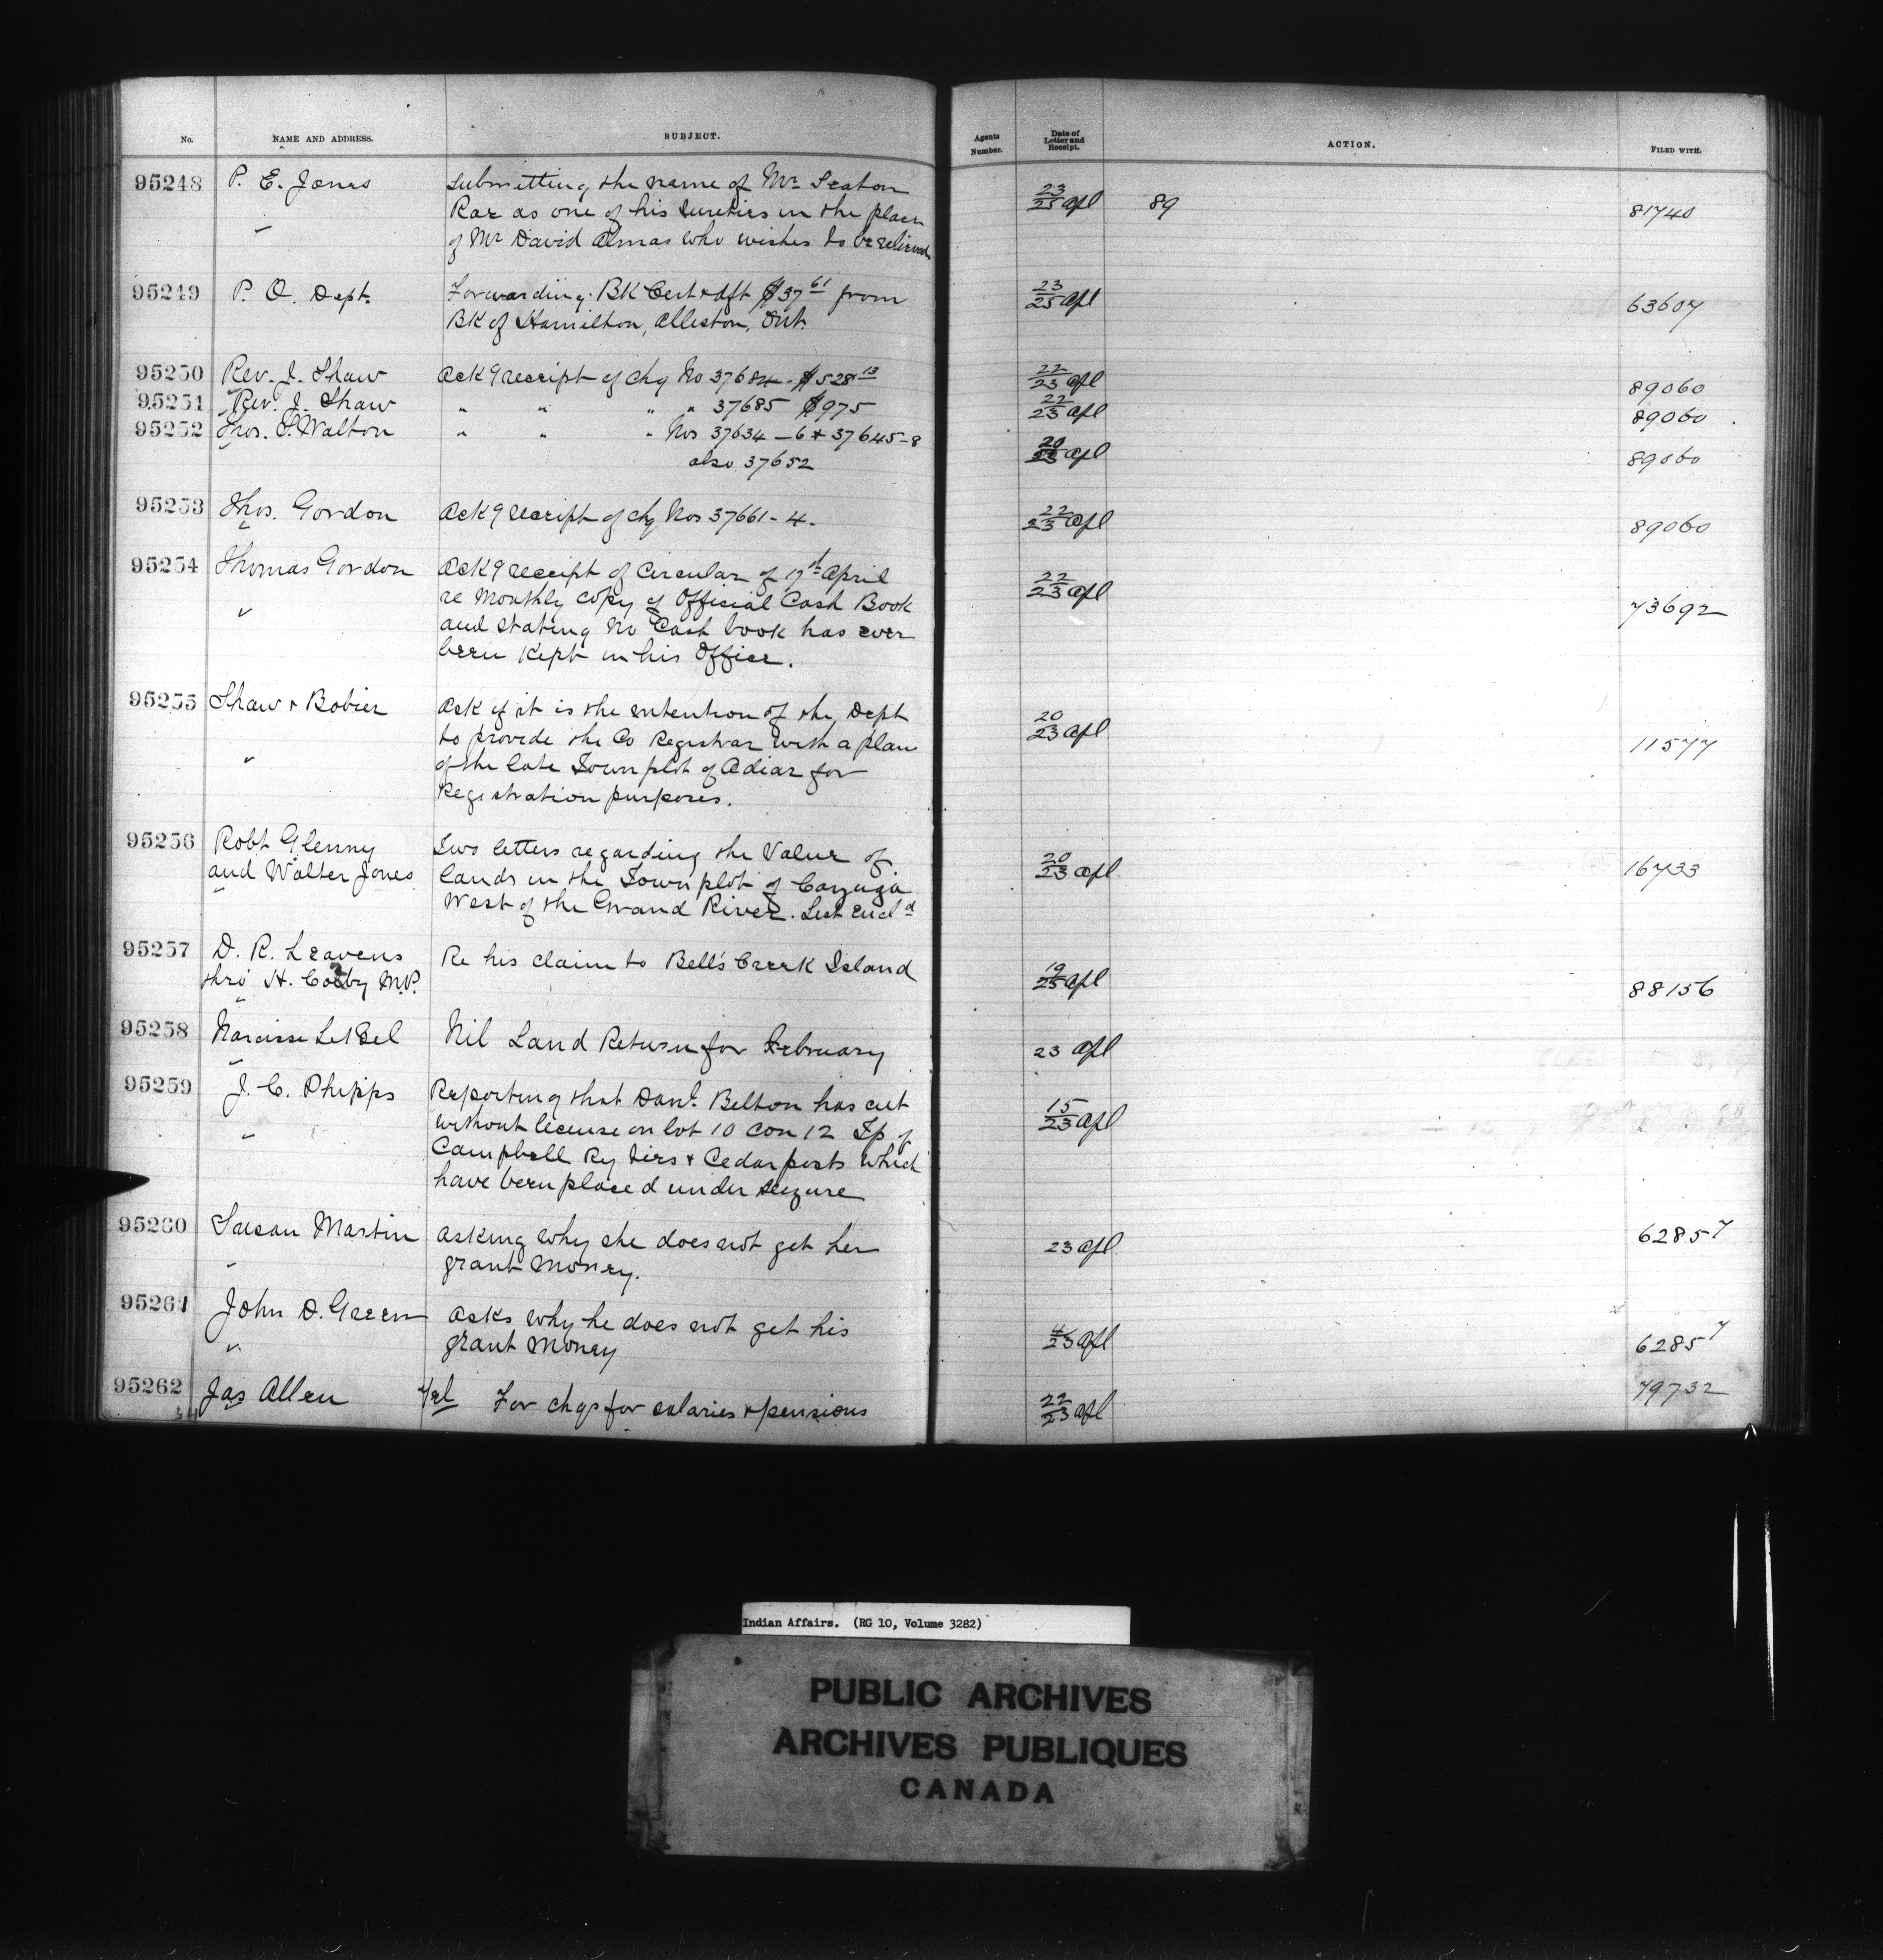 No. NAME AND ADDRESS. SUBJECT. Agents Number. Date of Letter and Receipt. ACTION. FILED WITH.
95248 P. E. Jones Submitting the name of Mr Seaton 23/25 Apl 89 81740
Rae as one of his sureties in the place
of Mr David Almas who wishes to be relieved
95249 P. O. Dept. Forwarding BK Cert & dft $37 61 from 23/25 Apl 63607
BK of Hamilton, Alleston, Ont.
95250 Rev. J. Shaw Ack g receipt of chq No 37684. $528 13 22/23 Apl 89060
95251 Rev. J. Shaw " " " " 37685 $975 22/23 Apl 89060
95252 Thos. S. Walton " " " Nos 37634-6 & 37645-8 20/23 Apl 89060
also 37652
95253 Thos. Gordon Ack g receipt of chq Nos 37661-4. 22/23 Apl 89060
95254 Thomas Gordon Ack g receipt of Circular of 17th April 22/23 Apl 73692
re Monthly copy of Official Cash Book
and stating no Cash book has ever
been kept in his Office.
95255 Shaw & Bobier Ask if it is the intention of the Dept 20/23 Apl 11577
to provide the Co Registrar with a plan
of the late Town plot of Adiar for
Registration purposes.
95256 Robt Glenny Two letters regarding the Value of 20/23 Apl 16733
and Walter Jones lands in the Town plot of Cayuga
West of the Grand River. List encld
95257 D. R. Leavens Re his claim to Bell's Creek Island 19/25 Apl 88156
thro' H. M.P.
95258 Narcisse LeBel Nil Land Return for February 23 Apl
95259 J. C. Phipps Reporting that Danl. Belton has cut 15/23 Apl
without license on lot 10 Con 12 Tp of
Campbell Ry ties & Cedar posts which
have been placed under seizure
95260 Susan Martin asking why she does not get her 23 Apl 62857
grant money.
95261 John D. Green asks why he does not get his 4/23 Apl 62857
grant money
95262 Jas Allen For chqs for salaries & pensions 22/23 Apl 79732
34
Indian Affairs. (RG 10, Volume 3282)
PUBLIC ARCHIVES
ARCHIVES PUBLIQUES
CANADA